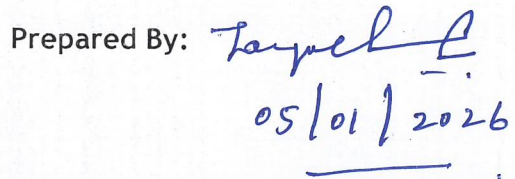 Prepared By:
05/01/2026